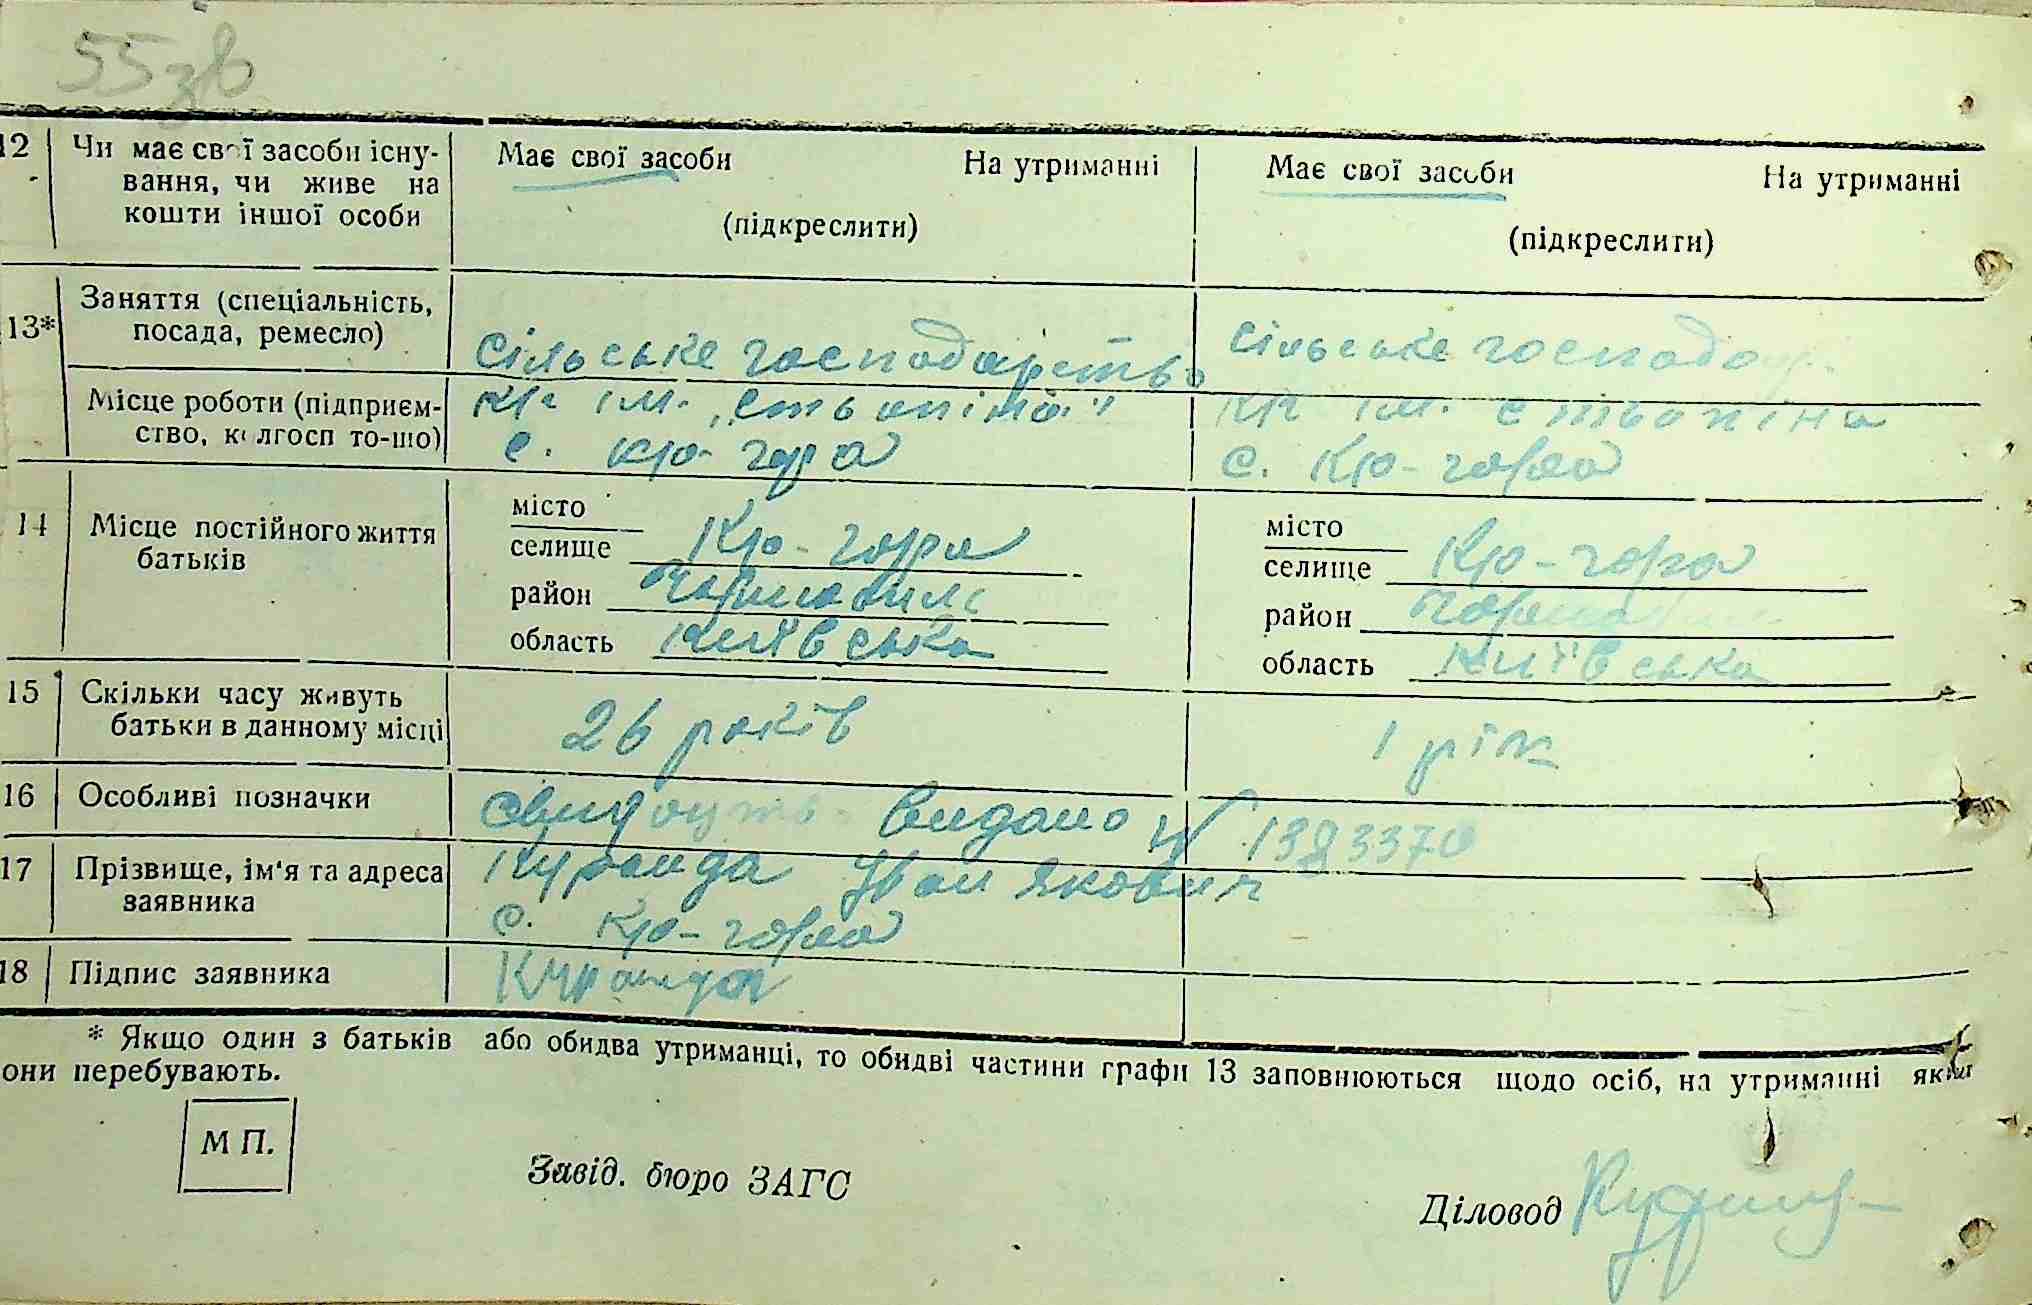 55зв
12 Чи має свої засоби існу-
вання, чи живе на
кошти іншої особи
Має свої засоби На утриманні
(підкреслити)
Має свої засоби На утриманні
(підкреслити)
13* Заняття (спеціальність,
посада, ремесло)
сільське господарство
сільське господар
Місце роботи (підприєм-
ство, колгосп то-що)
кг ім.
с. Кр-гора
кг ім.
с. Кр-гора
14 Місце постійного життя
батьків
місто
селище Кр-гора
район
область Київська
місто
селище Кр-гора
район
область Київська
15 Скільки часу живуть
батьки в данному місці
26 років
1 рік
16 Особливі позначки
видано № 1383370
17 Прізвище, ім'я та адреса
заявника
Куранда Іван Якович
с. Кр-гора
18 Підпис заявника
Куранда
* Якщо один з батьків або обидва утриманці, то обидві частини графи 13 заповнюються щодо осіб, на утриманні яких
они перебувають.
М П.
Завід. бюро ЗАГС
Діловод